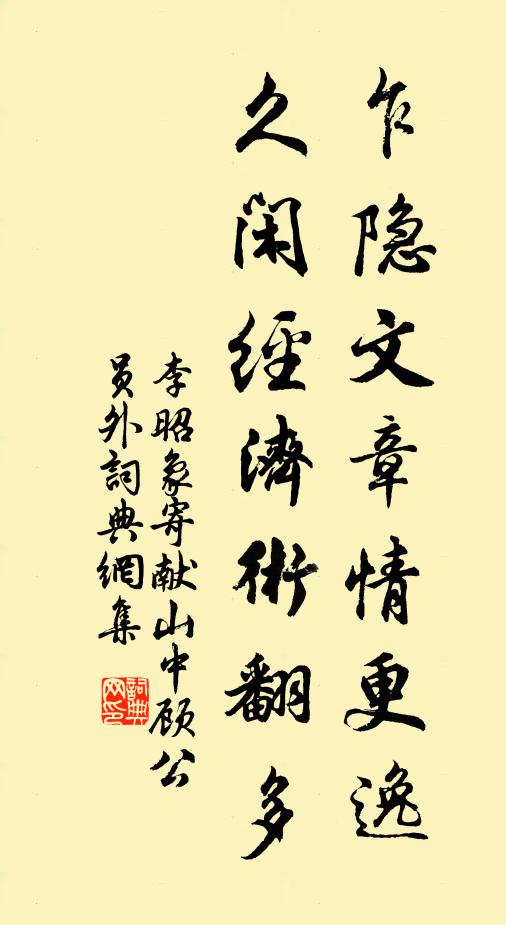 乍隐文章情更逸
久闲經濟術翻多
李昭象寄献山中顾公
员外詞典網集
詞典
网印